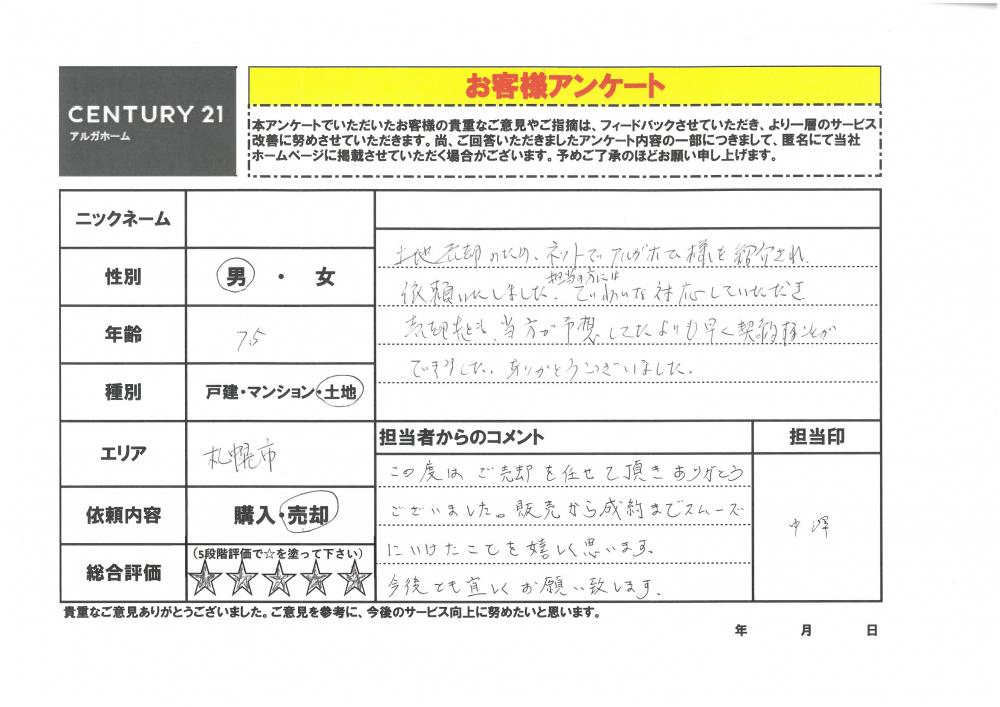 CENTURY 21
アルガホーム
お客様アンケート
本アンケートでいただいたお客様の貴重なご意見やご指摘は、フィードバックさせていただき、より一層のサービス
改善に努めさせていただきます。尚、ご回答いただきましたアンケート内容の一部につきまして、匿名にて当社
ホームページに掲載させていただく場合がございます。予めご了承のほどお願い申し上げます。
ニックネーム
性別
男 ・ 女
年齢
75
種別
戸建・マンション・土地
エリア
札幌市
依頼内容
購入・売却
総合評価
(5段階評価で☆を塗って下さい)
土地売却のため、ネットでアルガホーム様を紹介され、
担当の方には
依頼いたしました。ていねいな対応していただき
売却も、当方が予想してたよりも早く契約することが
できました。ありがとうございました。
担当者からのコメント
担当印
この度はご売却を任せて頂きありがとう
ございました。販売から成約までスムーズ
にいけたことを嬉しく思います。
今後とも宜しくお願い致します。
中澤
貴重なご意見ありがとうございました。ご意見を参考に、今後のサービス向上に努めたいと思います。
年 月 日